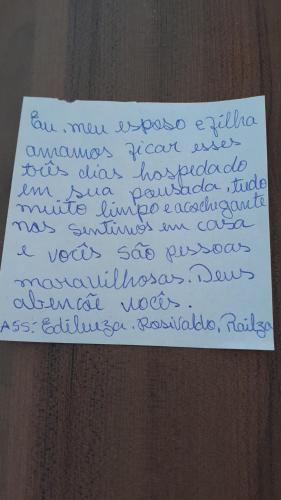 Eu, meu esposo e filha
amamos ficar esses
três dias hospedado
em sua pousada, tudo
muito limpo e acochigante
nos sentimos em casa
e vocês são pessoas
maravilhosas. Deus
abençõe vocês.
ASS: Ediluza. Rosivaldo, Railza